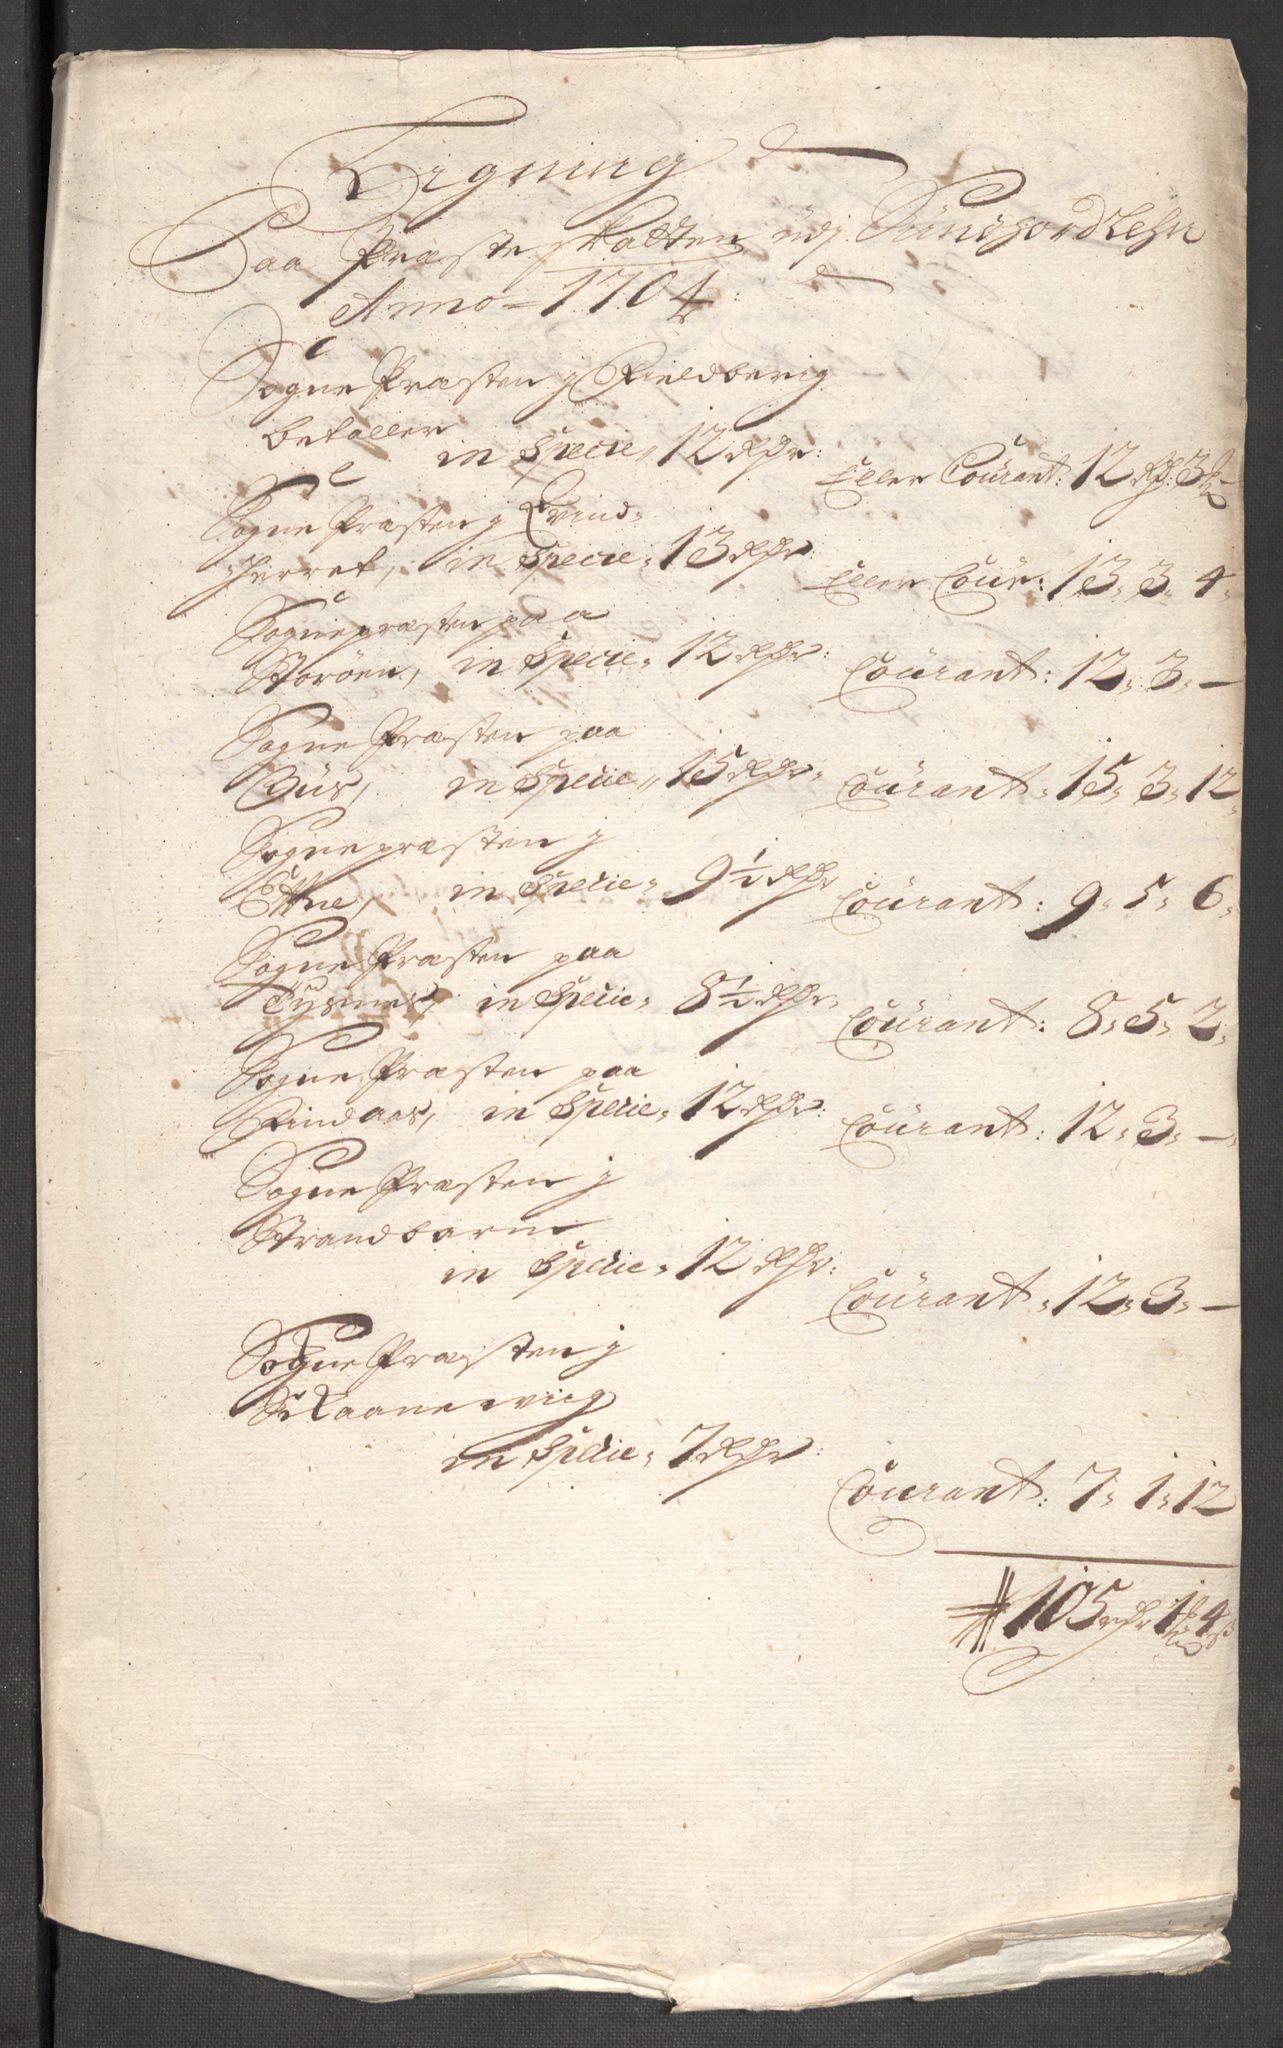 Ligning
Paa Præste skatten udj Sundhordlehn
Anno 1704:
Sogne Præsten j Fieldberig
betaller
in Specie 12 Rdr: Eller Courant: 12 Rd: 3 –
Sogne Præsten j Qvind-
herret, in Specie 13 Rdr: Eller Cour: 13 3 4
Sognepræsten paa
Storøen, in Specie 12 Rdr: Courant: 12 3 –
Sogne Præsten paa
Øus, in Specie 15 Rdr Courant 15 3 12
Sognepræsten j
Ettne, in Specie 9½ Rdr Courant: 9 5 6
Sogne Præsten paa
Tysnes, in Specie 8½ Rdr Courant: 8 5 2
Sogne Præsten paa
Findaas, in Specie 12 Rdr: Courant: 12 3 –
Sogne Præsten j
Strandbarm
in Specie 12 Rdr: Courant 12 3 –
Sogne Præsten j
Skaanewiig
in Specie 7 Rdr: Courant: 7 1 12
105 Rdr 1 4 ß